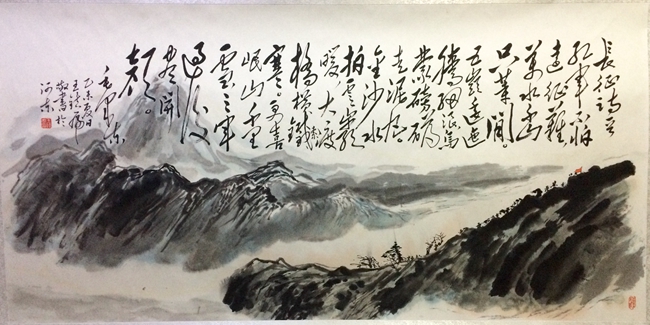 長征詩
紅軍不怕
遠征難
萬水千山
只等閒。
五嶺逶迤
騰細浪烏
蒙磅礴
走泥丸
金沙水
拍雲崖
暖大渡
橋橫鐵索
寒。更喜
岷山千里
雪三軍
過後
盡開
顏。
毛澤東
乙未夏日
敬書於
河東